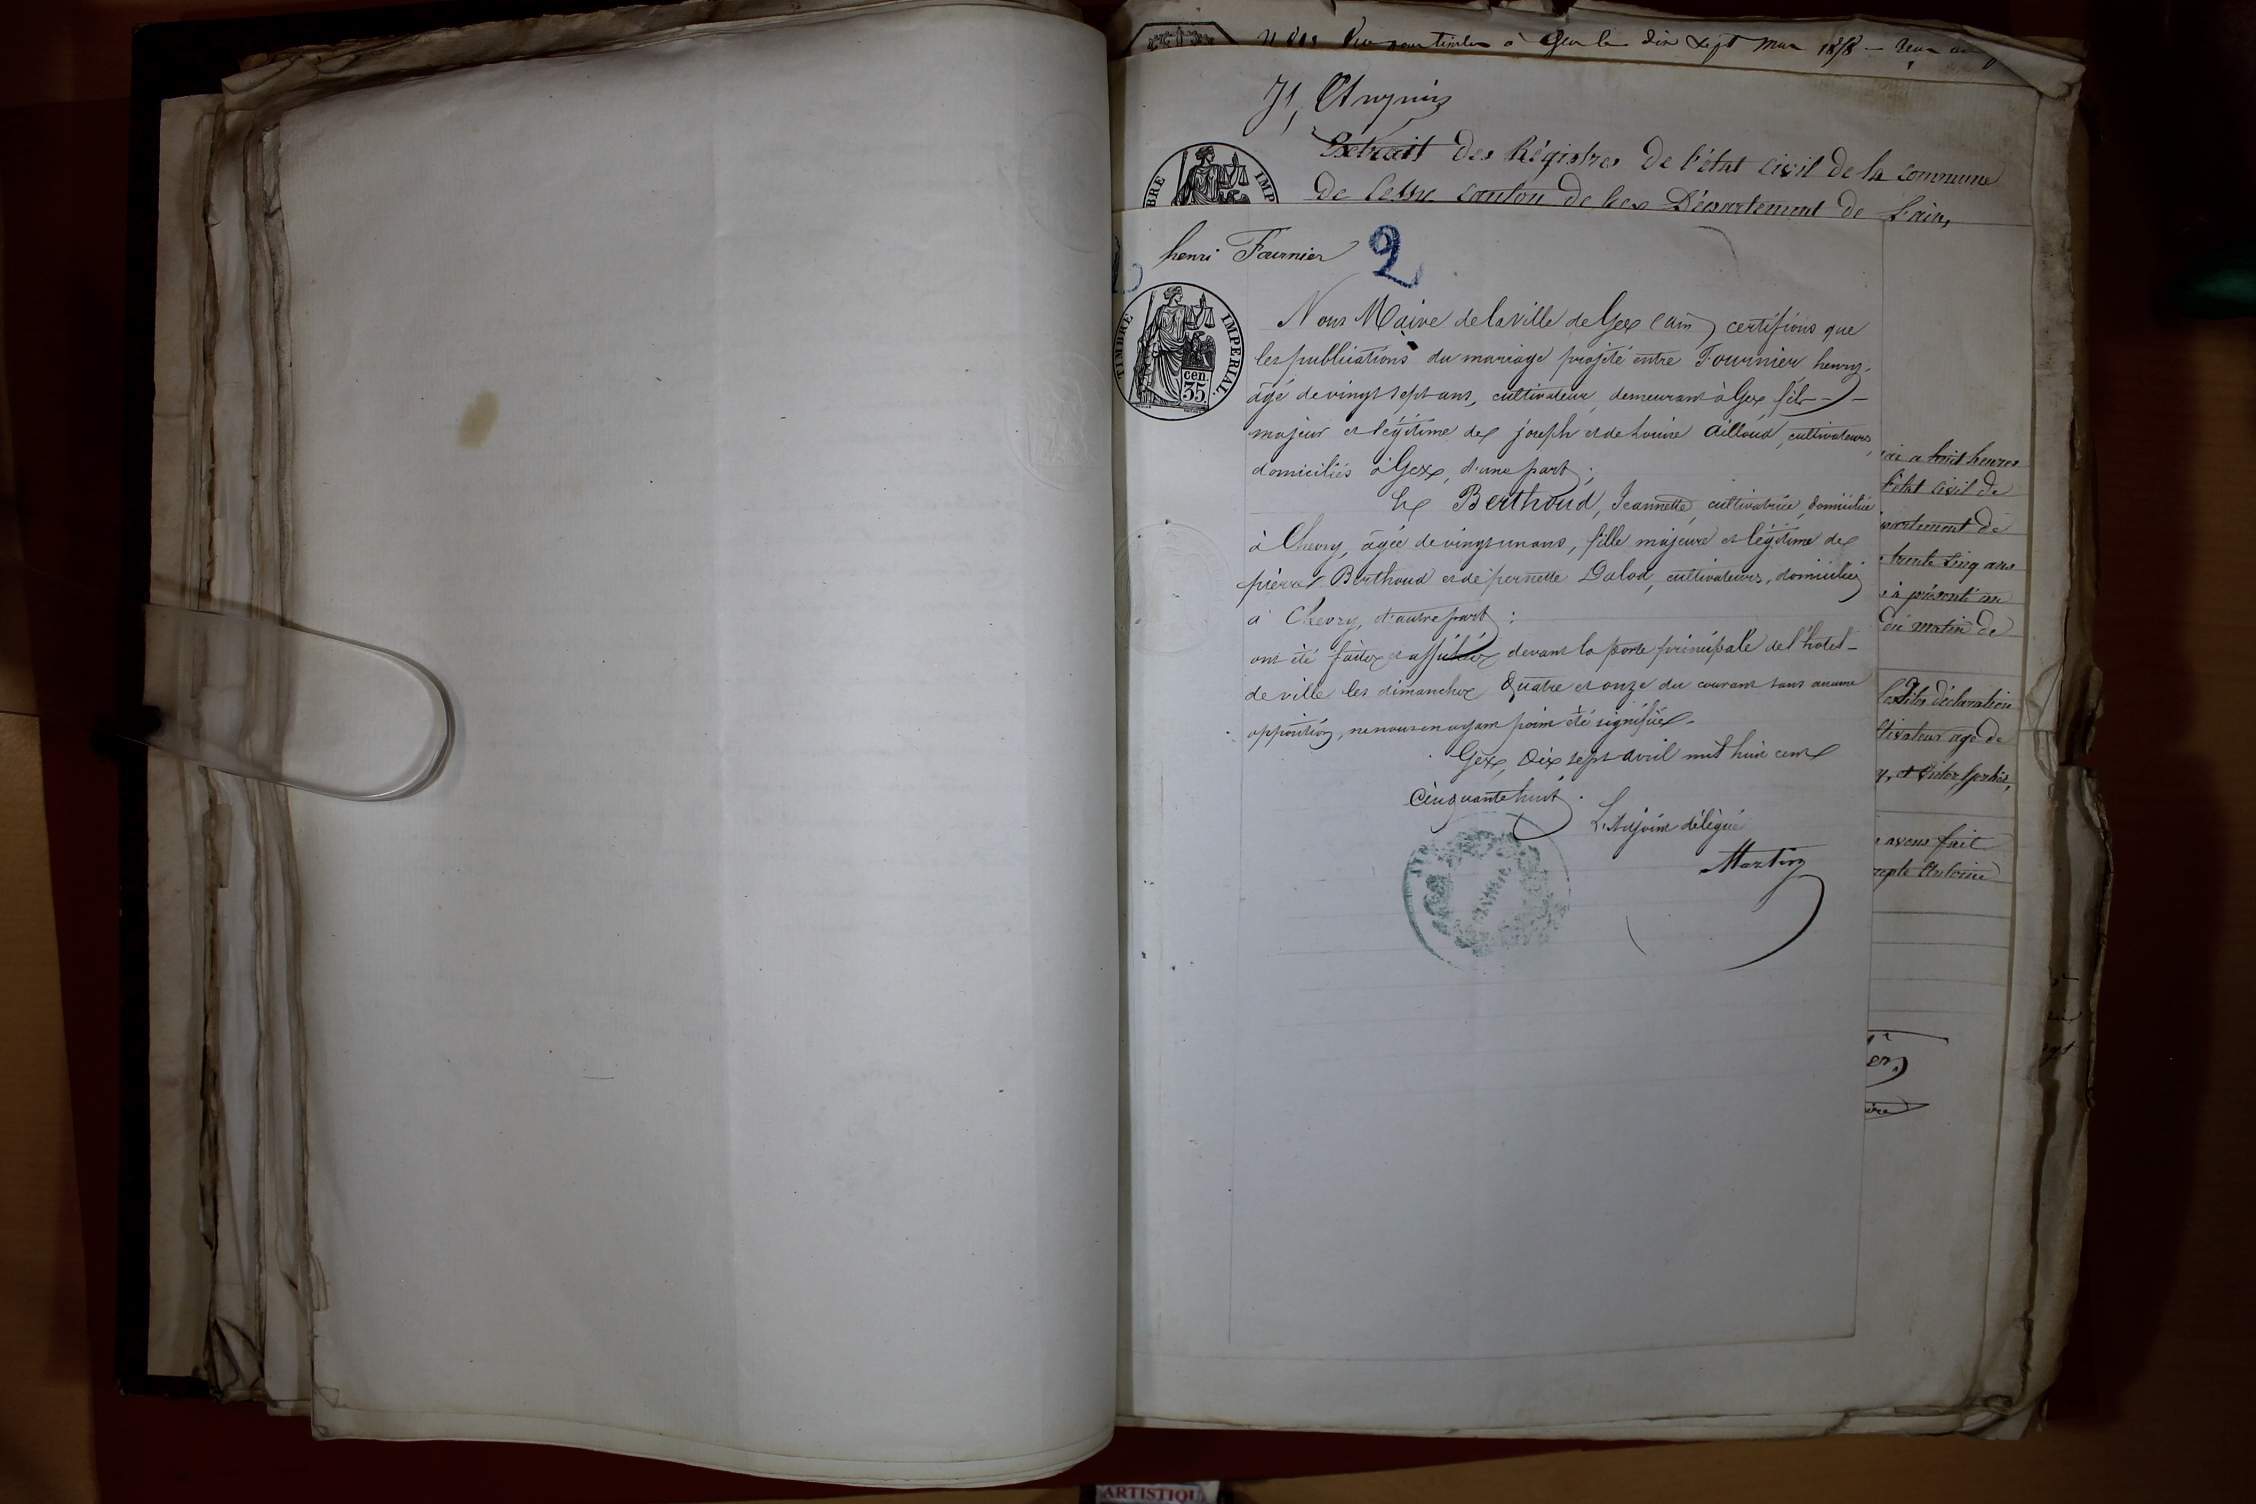 dix sept mai 1858
Extrait des Régistres de l'état civil de la commune
de Cessy canton de Gex Département de l'ain,
henri Fournier 2
TIMBRE IMPERIAL
cen. 35
Nous Maire de la Ville de Gex (ain) certifions que
les publications du mariage projeté entre Fournier henry,
âgé de vingt sept ans, cultivateur, demeurant à Gex, fils
majeur et légitime des joseph et de Louise Ailloud, cultivateurs,
domiciliés à Gex, d'une part;
Et Berthoud, Jeannette, cultivatrice, domiciliée
à Chevry, âgée de vingt un ans, fille majeure et légitime des
pierre Berthoud et de pernette Dalod, cultivateurs, domiciliés
à Chevry, d'autre part:
ont été faites et affichées devant la porte principale de l'hotel-
de ville les dimanches Quatre et onze du courant sans aucune
opposition, ne nous en ayant point été signifiées.
Gex, Dix sept avril mil huit cent
Cinquante huit.
L'Adjoint délégué
Martin
MAIRIE
a huit heures
l'état civil de
trente cinq ans
a présenté un
du matin de
déclaration
agé de
avons fait
Antoine
ARTISTIQU